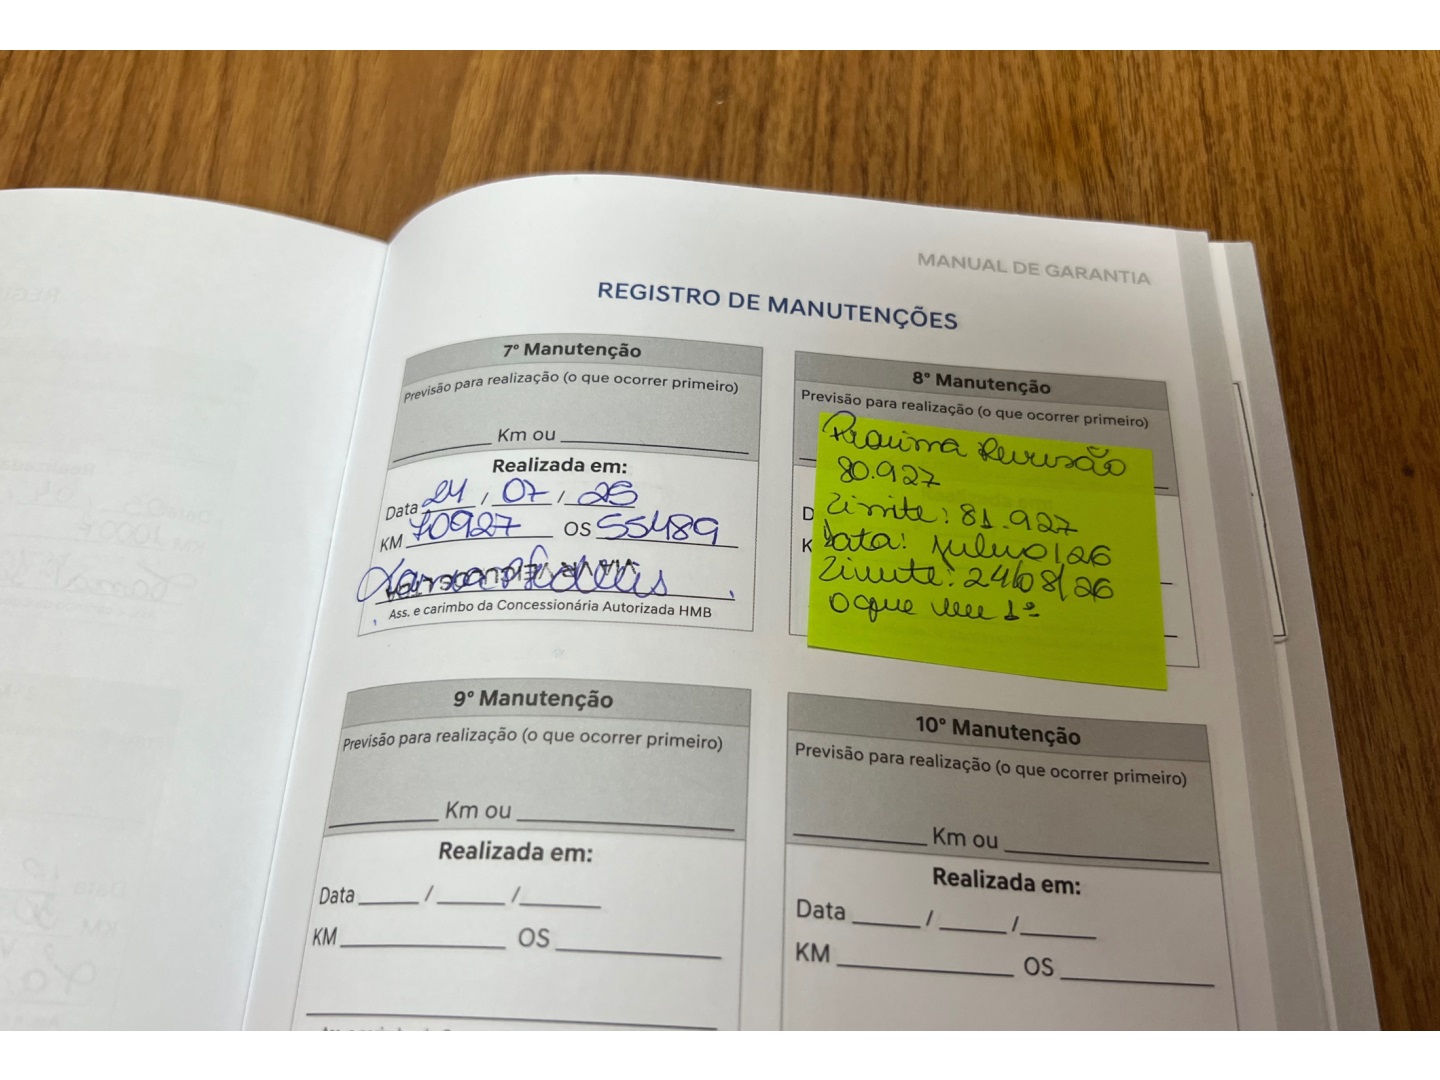 MANUAL DE GARANTIA
REGISTRO DE MANUTENÇÕES
7º Manutenção
Previsão para realização (o que ocorrer primeiro)
Km ou
Realizada em:
Data 24 / 07 / 25
KM 70927 OS 55489
Ass. e carimbo da Concessionária Autorizada HMB
8º Manutenção
Previsão para realização (o que ocorrer primeiro)
Proxima Revisão
80.927
Limite: 81.927
Data: julho/26
Limite: 24/08/26
O que vier 1º
9º Manutenção
Previsão para realização (o que ocorrer primeiro)
Km ou
Realizada em:
Data / /
KM OS
10º Manutenção
Previsão para realização (o que ocorrer primeiro)
Km ou
Realizada em:
Data / /
KM OS